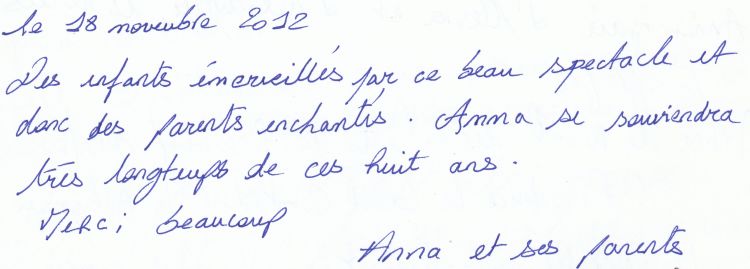 le 18 novembre 2012
Des enfants émerveillés par ce beau spectacle et
donc des parents enchantés. Anna se souviendra
très longtemps de ces huit ans.
Merci beaucoup
Anna et ses parents